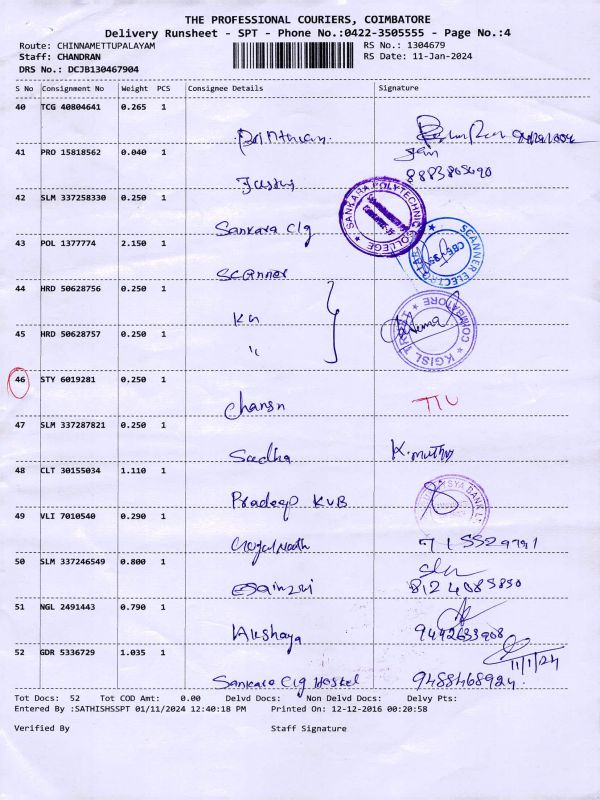 THE PROFESSIONAL COURIERS, COIMBATORE
Delivery Runsheet - SPT - Phone No.:0422-3505555 - Page No.:4
Route: CHINNAMETTUPALAYAM
RS No.: 1304679
Staff: CHANDRAN
RS Date: 11-Jan-2024
DRS No.: DCJB130467904
S No Consignment No Weight PCS Consignee Details Signature
40 TCG 40804641 0.265 1
41 PRO 15818562 0.040 1
8883805690
42 SLM 337258330 0.250 1
Sankara Clg
SANKARA POLYTECHNIC COLLEGE
43 POL 1377774 2.150 1
Scanner
SCANNER ELECTRICAL
44 HRD 50628756 0.250 1
45 HRD 50628757 0.250 1
"
KGISL COIMBATORE
46 STY 6019281 0.250 1
47 SLM 337287821 0.250 1
Sudha K. muthu
48 CLT 30155034 1.110 1
Pradeep KVB
VYSYA BANK
49 VLI 7010540 0.290 1
50 SLM 337246549 0.800 1
812 4085850
51 NGL 2491443 0.790 1
Akshaya 9442633908
52 GDR 5336729 1.035 1
11/1/24
Sankara Clg Hostel 9488468924.
Tot Docs: 52 Tot COD Amt: 0.00 Delvd Docs: Non Delvd Docs: Delvy Pts:
Entered By :SATHISHSSPT 01/11/2024 12:40:18 PM Printed On: 12-12-2016 00:20:58
Verified By Staff Signature